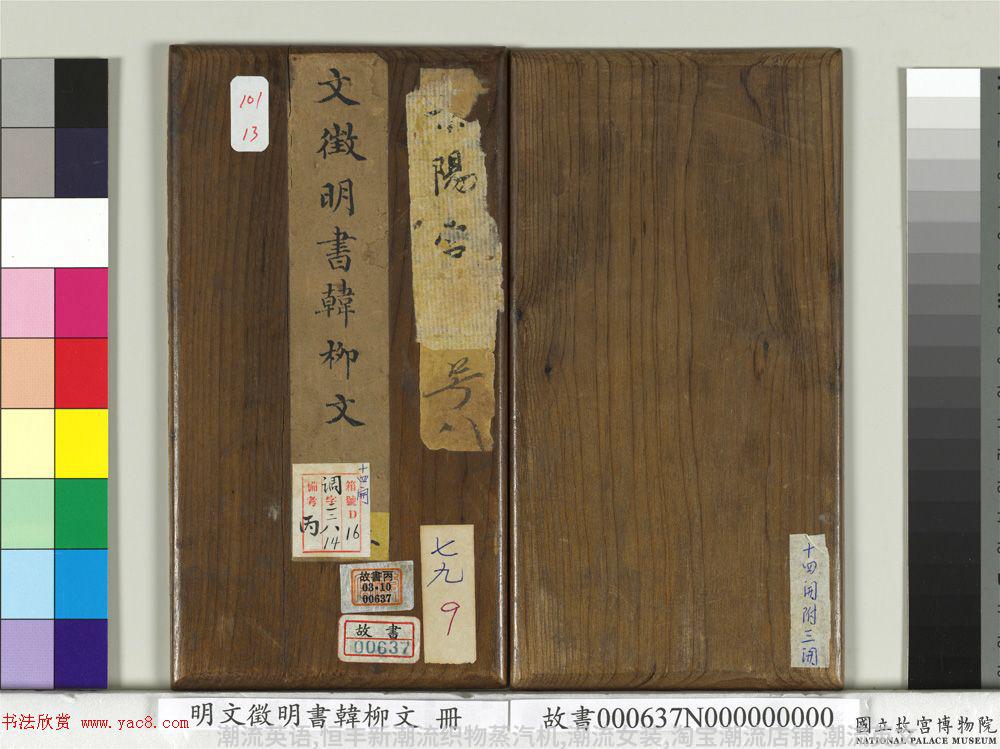 101
13
文徵明書韓柳文
陽宮
号八
十四開
箱號D16
调字三八14
備考丙
故書丙
03·10
00637
故書
00637
七九
9
十四開附三開
明文徵明書韓柳文 冊
故書000637N000000000
國立故宮博物院
NATIONAL PALACE MUSEUM
书法欣赏 www.yac8.com
潮流英语,恒丰新潮流织物蒸汽机,潮流女装,淘宝潮流店铺,潮流